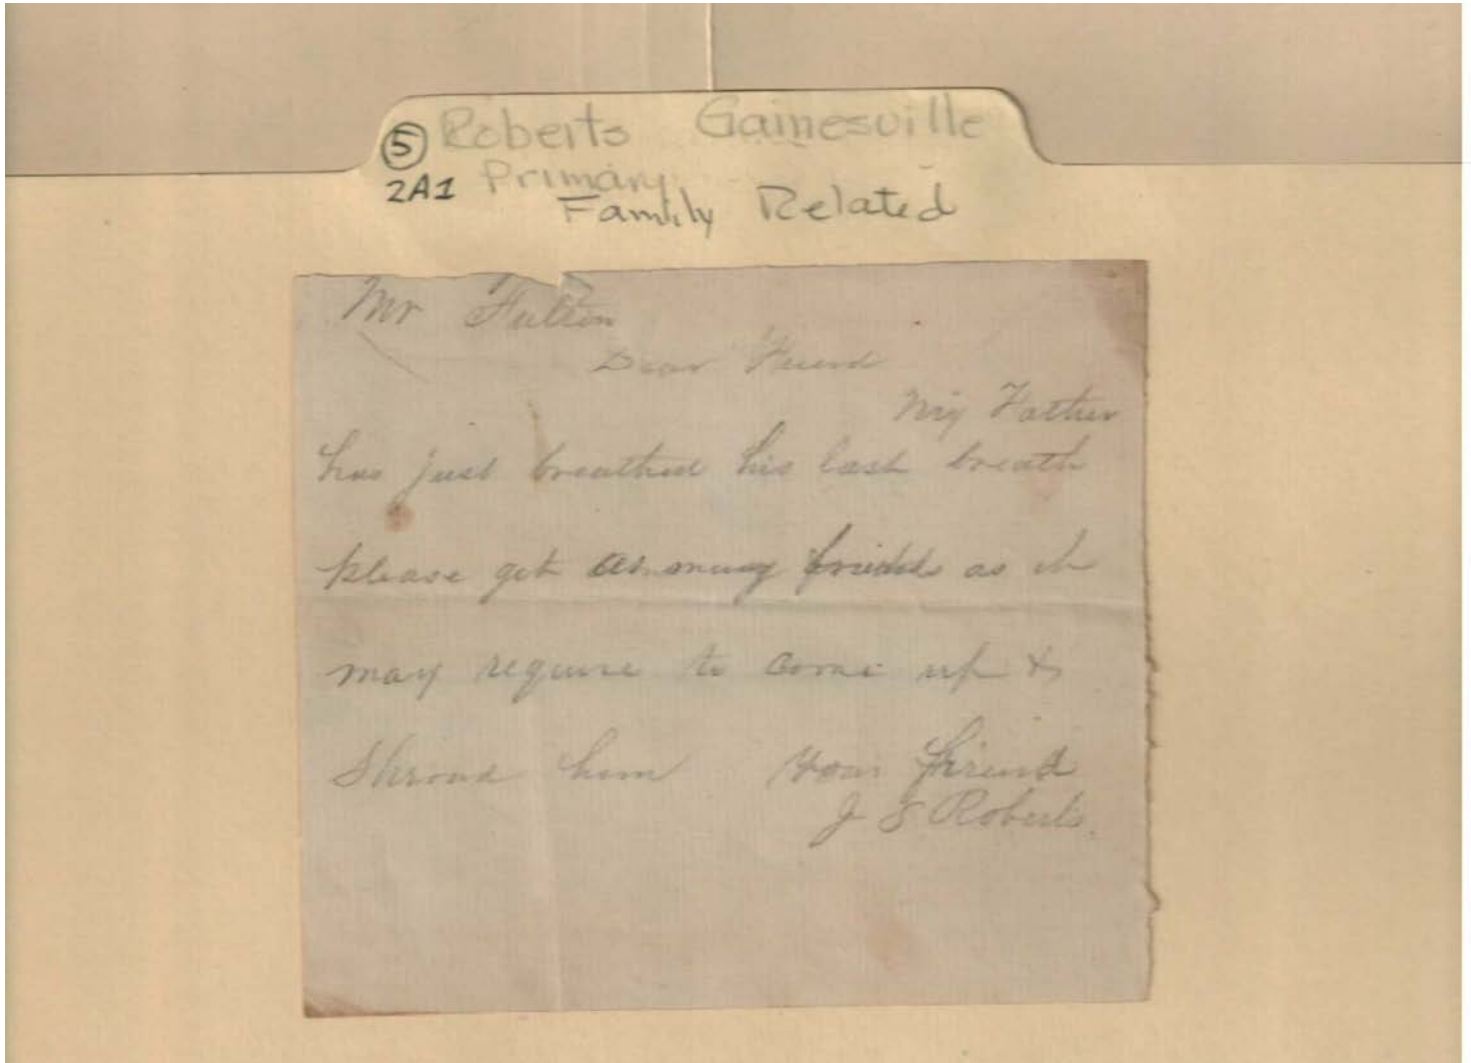 ⑤ Roberts Gainesville
2A1 Primary
Family Related
Mr Fulton
Dear Friend
My Father
has just breathed his last breath
please get as many as it
may require to come up &
Shroud him Your friend
J S Roberts.